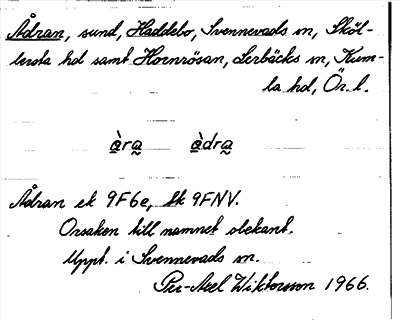 Ådran, sund, Haddebo, Svennevads sn, Sköl-
lersta hd samt Hornrösan, Lerbäcks sn, Kum-
la hd, Ör. l.
àra àdra
Ådran ek 9F6e, tk 9FNV.
Orsaken till namnet obekant.
Uppt. i Svennevads sn.
Per-Axel Wiktorsson 1966.